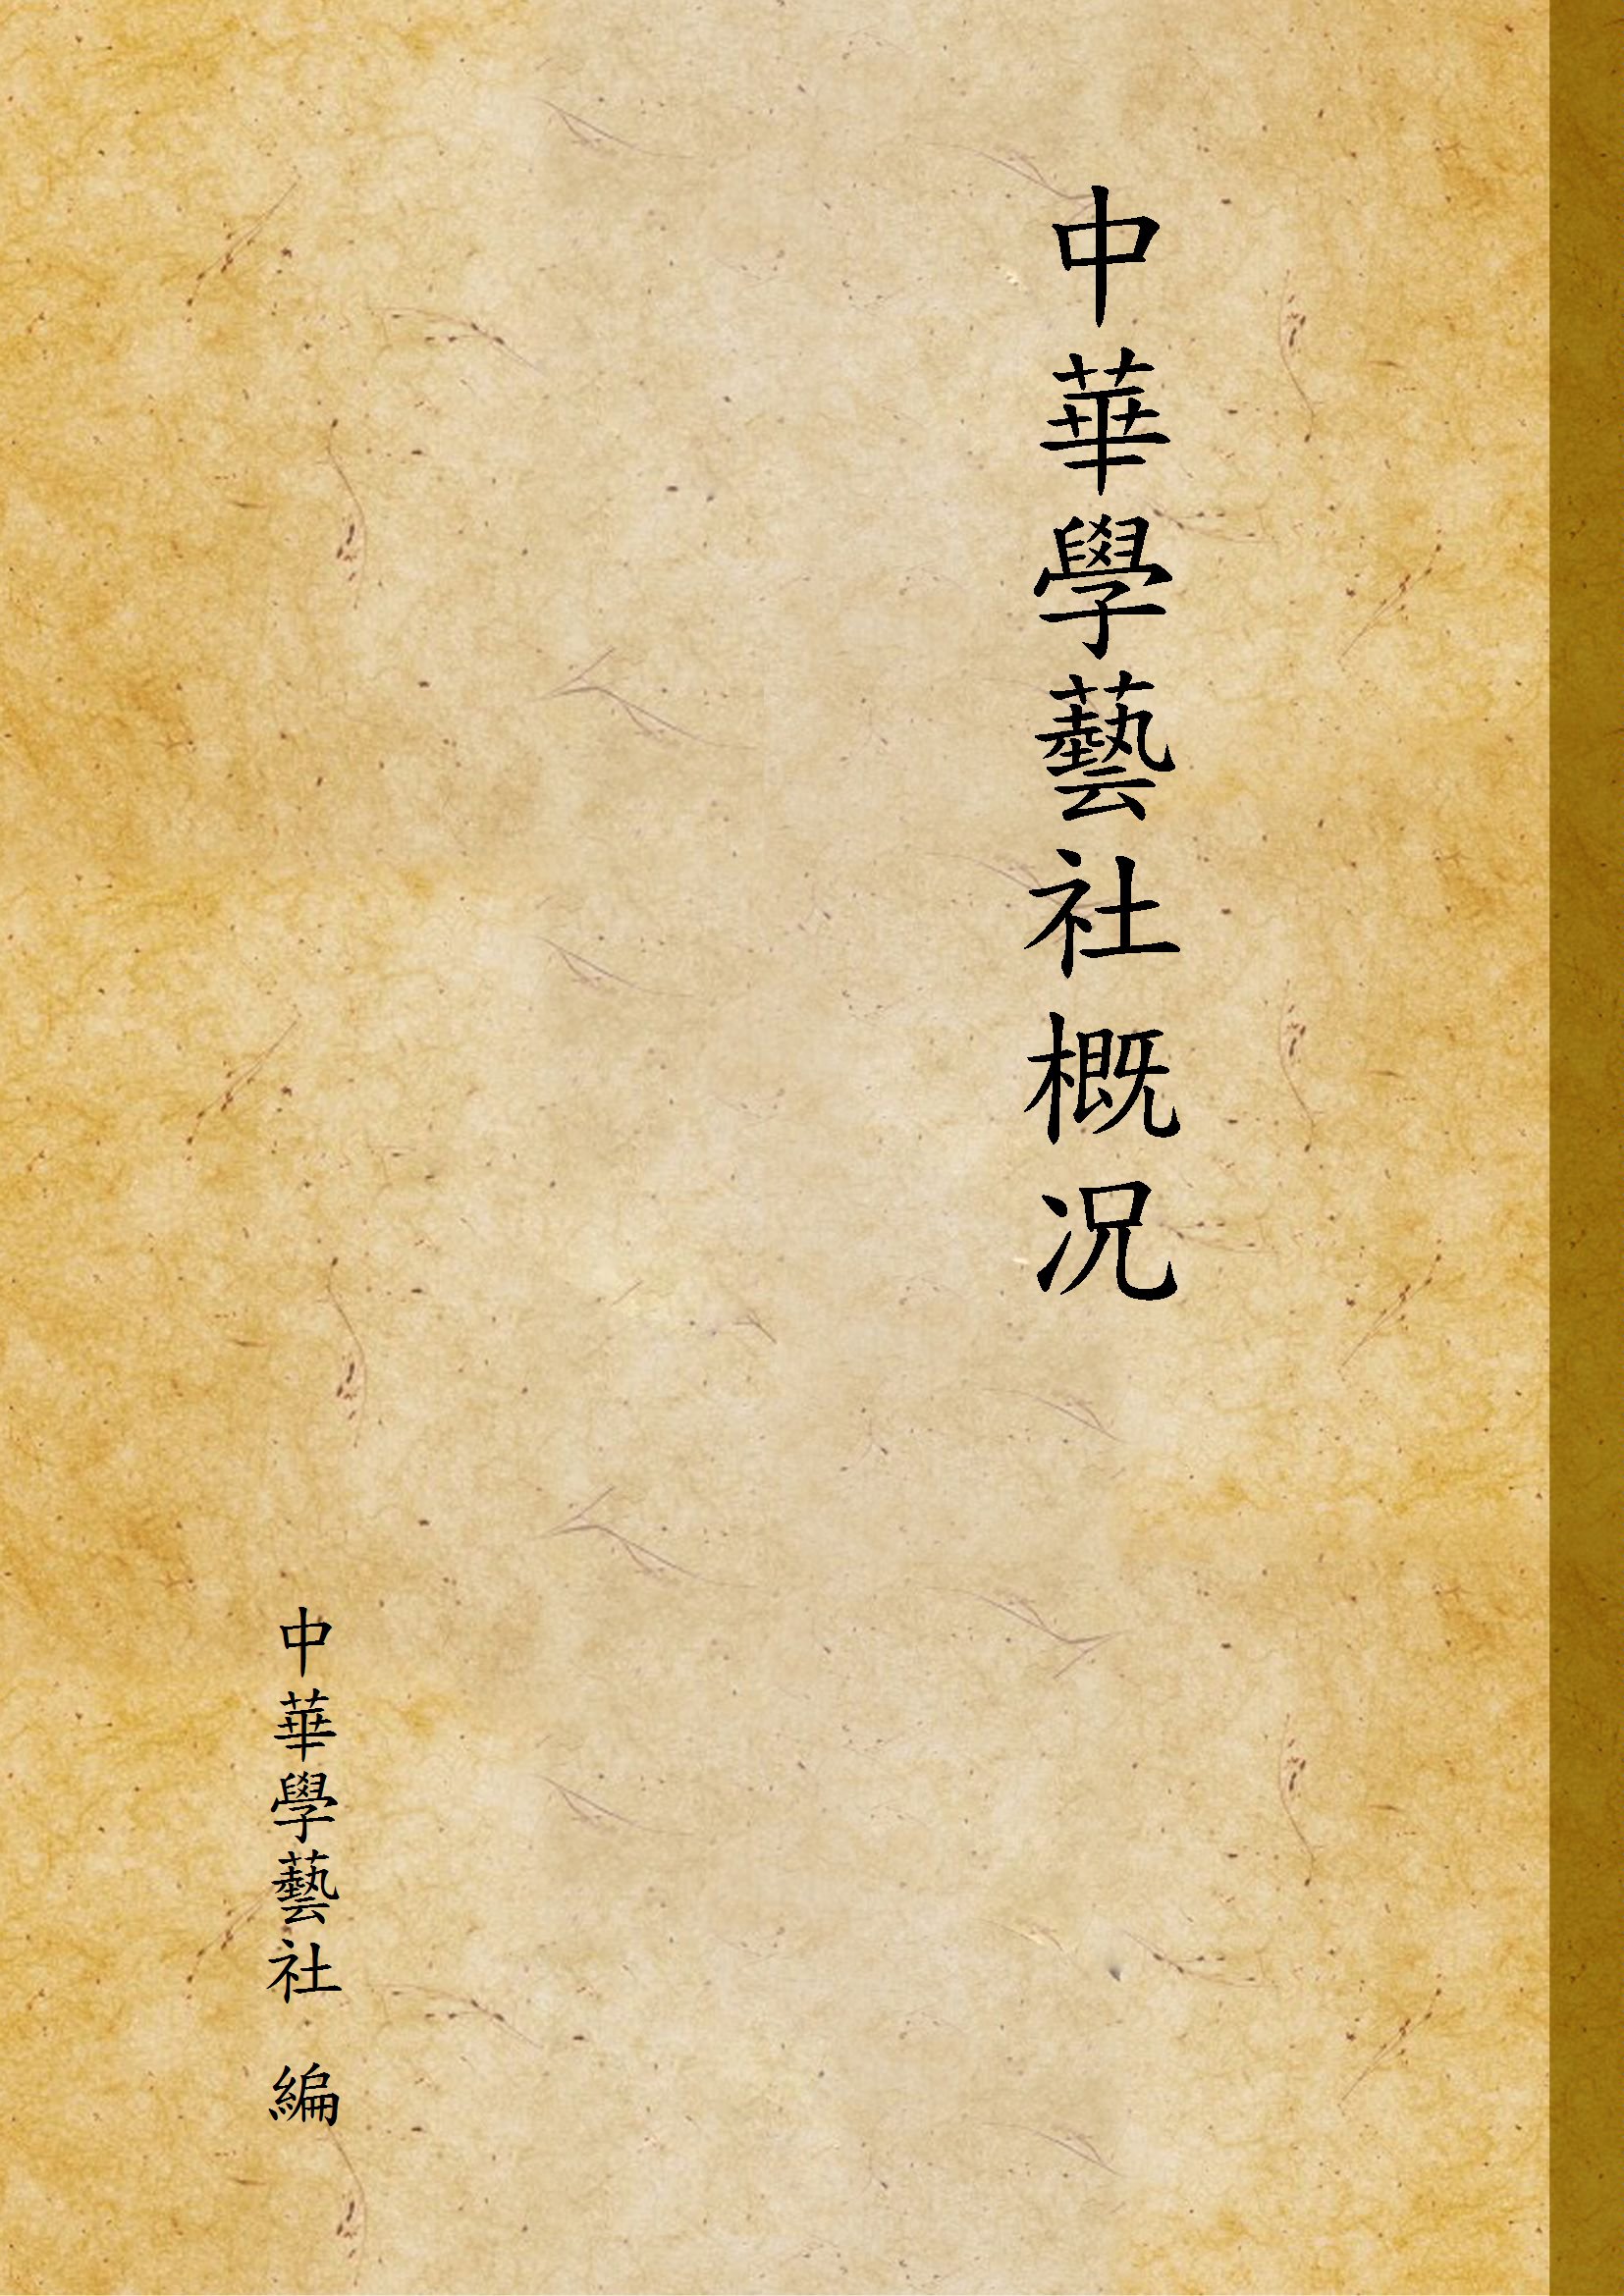 中華學藝社概况
中華學藝社 編